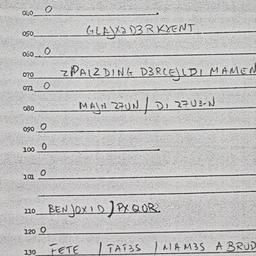 040 O
050 GLAJXZD3RKXENT
060 O
070 ZPAIZDING D3RCEJLDI MAMEN
071 O
080 MAJN 27UN / DI 27U3-N
090 O
100 O
101 O
110 BENJOXID J PXQOR2.
120 O
130 FETE / TAT3S / NAM3S A BRUD